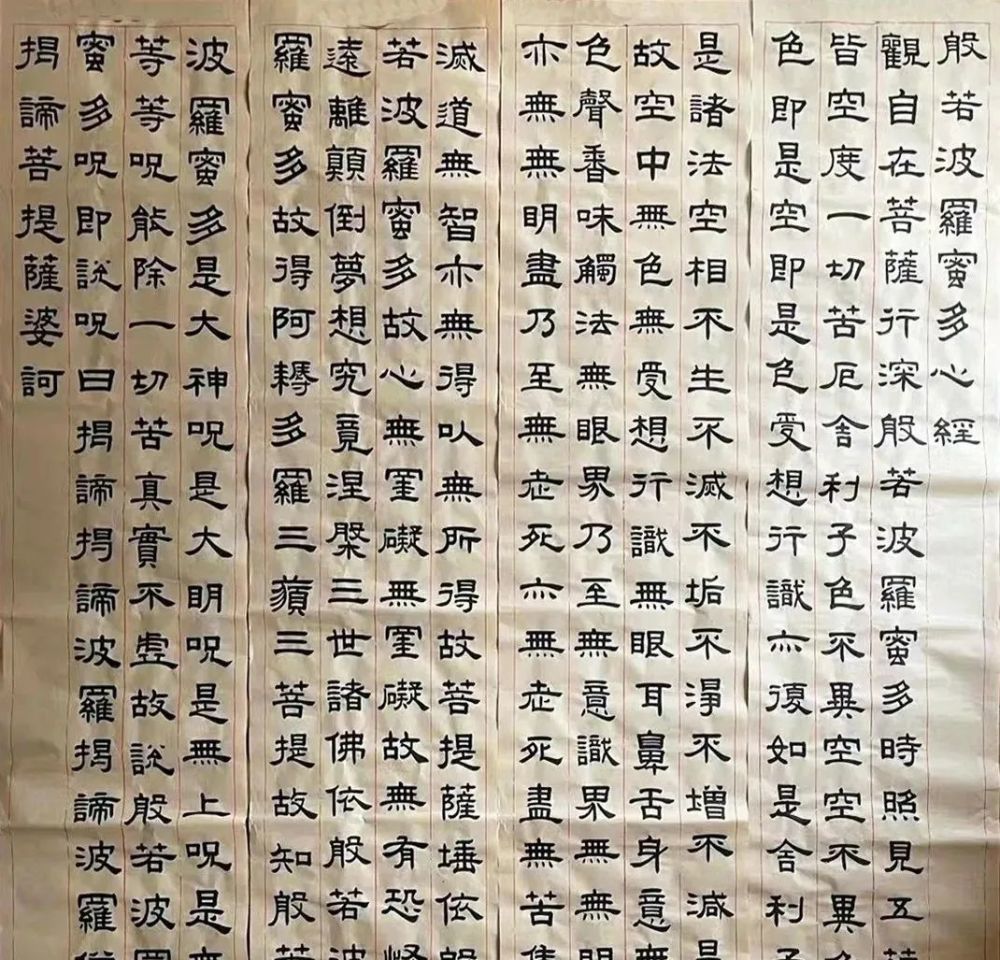 般若波羅蜜多心經
觀自在菩薩行深般若波羅蜜多時照見五
皆空度一切苦厄舍利子色不異空空不異色
色即是空即是色受想行識亦復如是舍利子
是諸法空相不生不滅不垢不淨不增不減是
故空中無色無受想行識無眼耳鼻舌身意無
色聲香味觸法無眼界乃至無意識界無無明
亦無無明盡乃至無老死亦無老死盡無苦集
滅道無智亦無得以無所得故菩提薩埵依般
若波羅蜜多故心無罣礙無罣礙故無有恐怖
遠離顛倒夢想究竟涅槃三世諸佛依般若波
羅蜜多故得阿耨多羅三藐三菩提故知般若
波羅蜜多是大神呪是大明呪是無上呪是無
等等呪能除一切苦真實不虛故說般若波羅
蜜多呪即說呪曰揭諦揭諦波羅揭諦波羅僧
揭諦菩提薩婆訶